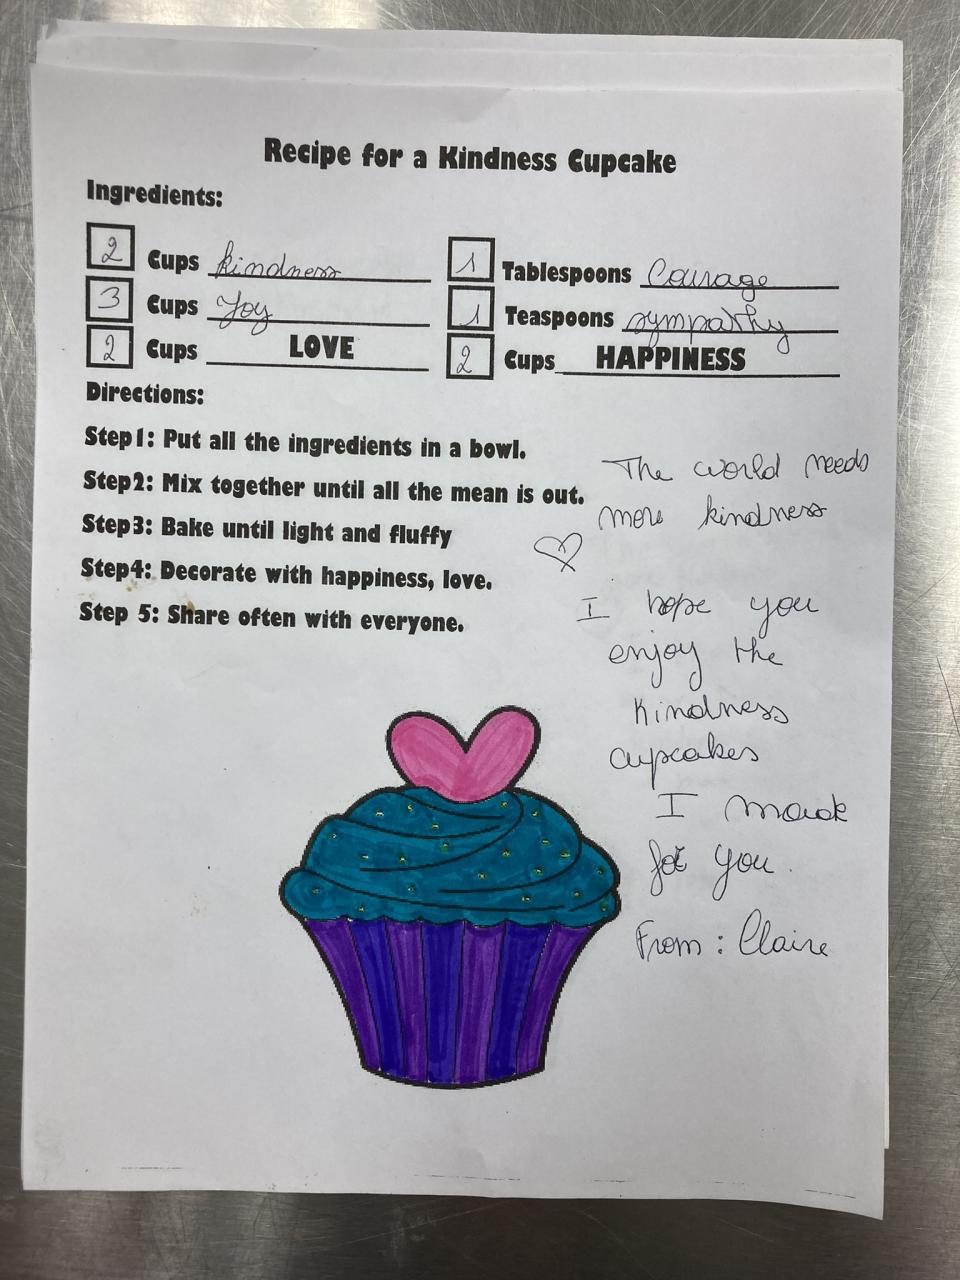 Recipe for a Kindness Cupcake
Ingredients:
2 Cups kindness
1 Tablespoons Courage
3 Cups Joy
1 Teaspoons sympathy
2 Cups LOVE
2 Cups HAPPINESS
Directions:
Step1: Put all the ingredients in a bowl.
Step2: Mix together until all the mean is out.
Step3: Bake until light and fluffy
Step4: Decorate with happiness, love.
Step 5: Share often with everyone.
The world needs
more kindness
I hope you
enjoy the
kindness
cupcakes
I made
for you.
From: Claire